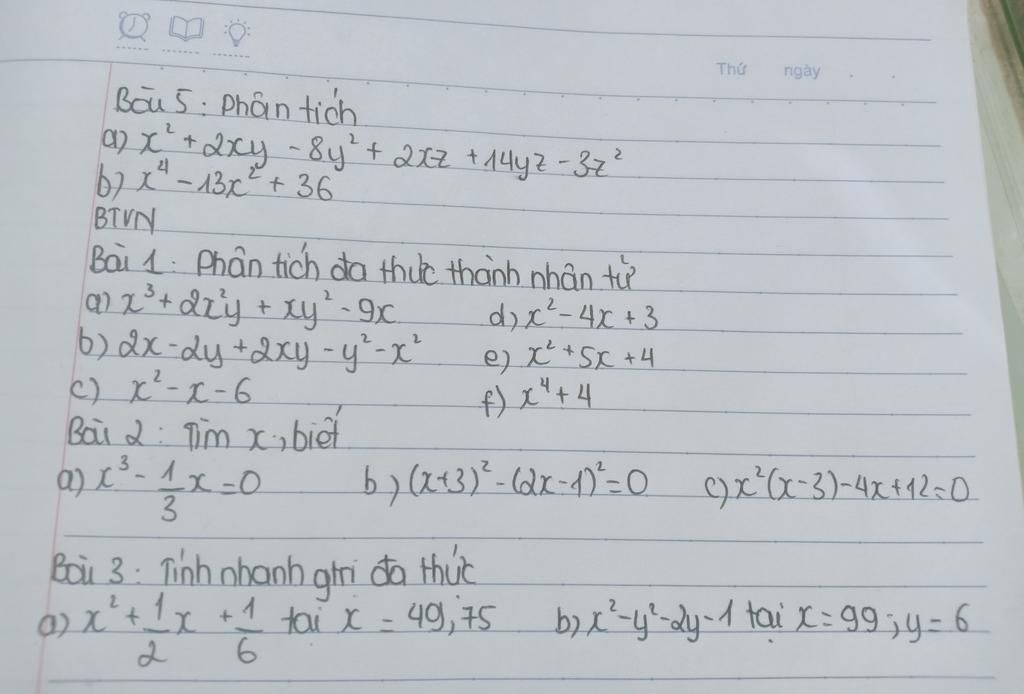 Thứ ngày . .
Bài 5: Phân tích
a) x² + 2xy - 8y² + 2xz + 14yz - 3z²
b) x⁴ - 13x² + 36
BTVN
Bài 1: Phân tích đa thức thành nhân tử
a) x³ + 2x²y + xy² - 9x d) x² - 4x + 3
b) 2x - 2y + 2xy - y² - x² e) x² + 5x + 4
c) x² - x - 6 f) x⁴ + 4
Bài 2: Tìm x, biết
a) x³ - 1/3 x = 0 b) (x+3)² - (2x-1)² = 0 c) x²(x-3) - 4x + 12 = 0
Bài 3: Tính nhanh gtri đa thức
a) x² + 1/2 x + 1/6 tại x = 49,75 b) x² - y² - 2y - 1 tại x = 99; y = 6